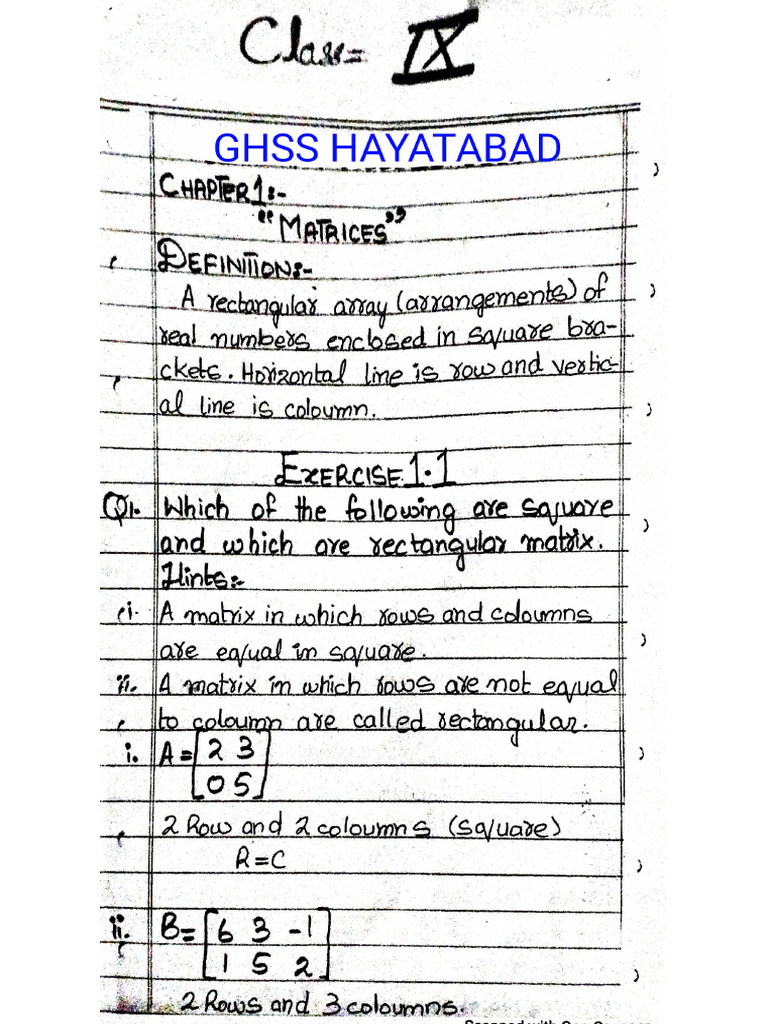 Class= IX
GHSS HAYATABAD
CHAPTER1:-
"MATRICES"
DEFINITION:-
A rectangular array (arrangements) of
real numbers enclosed in square bra-
ckets. Horizontal line is row and vertic-
al line is coloumn.
EXERCISE 1.1
Q1. Which of the following are square
and which are rectangular matrix.
Hints:-
i. A matrix in which rows and coloumns
are equal in square.
ii. A matrix in which rows are not equal
to coloumn are called rectangular.
i. A = [2 3
0 5]
2 Row and 2 coloumns (square)
R = C
ii. B = [6 3 -1
1 5 2]
2 Rows and 3 coloumns.